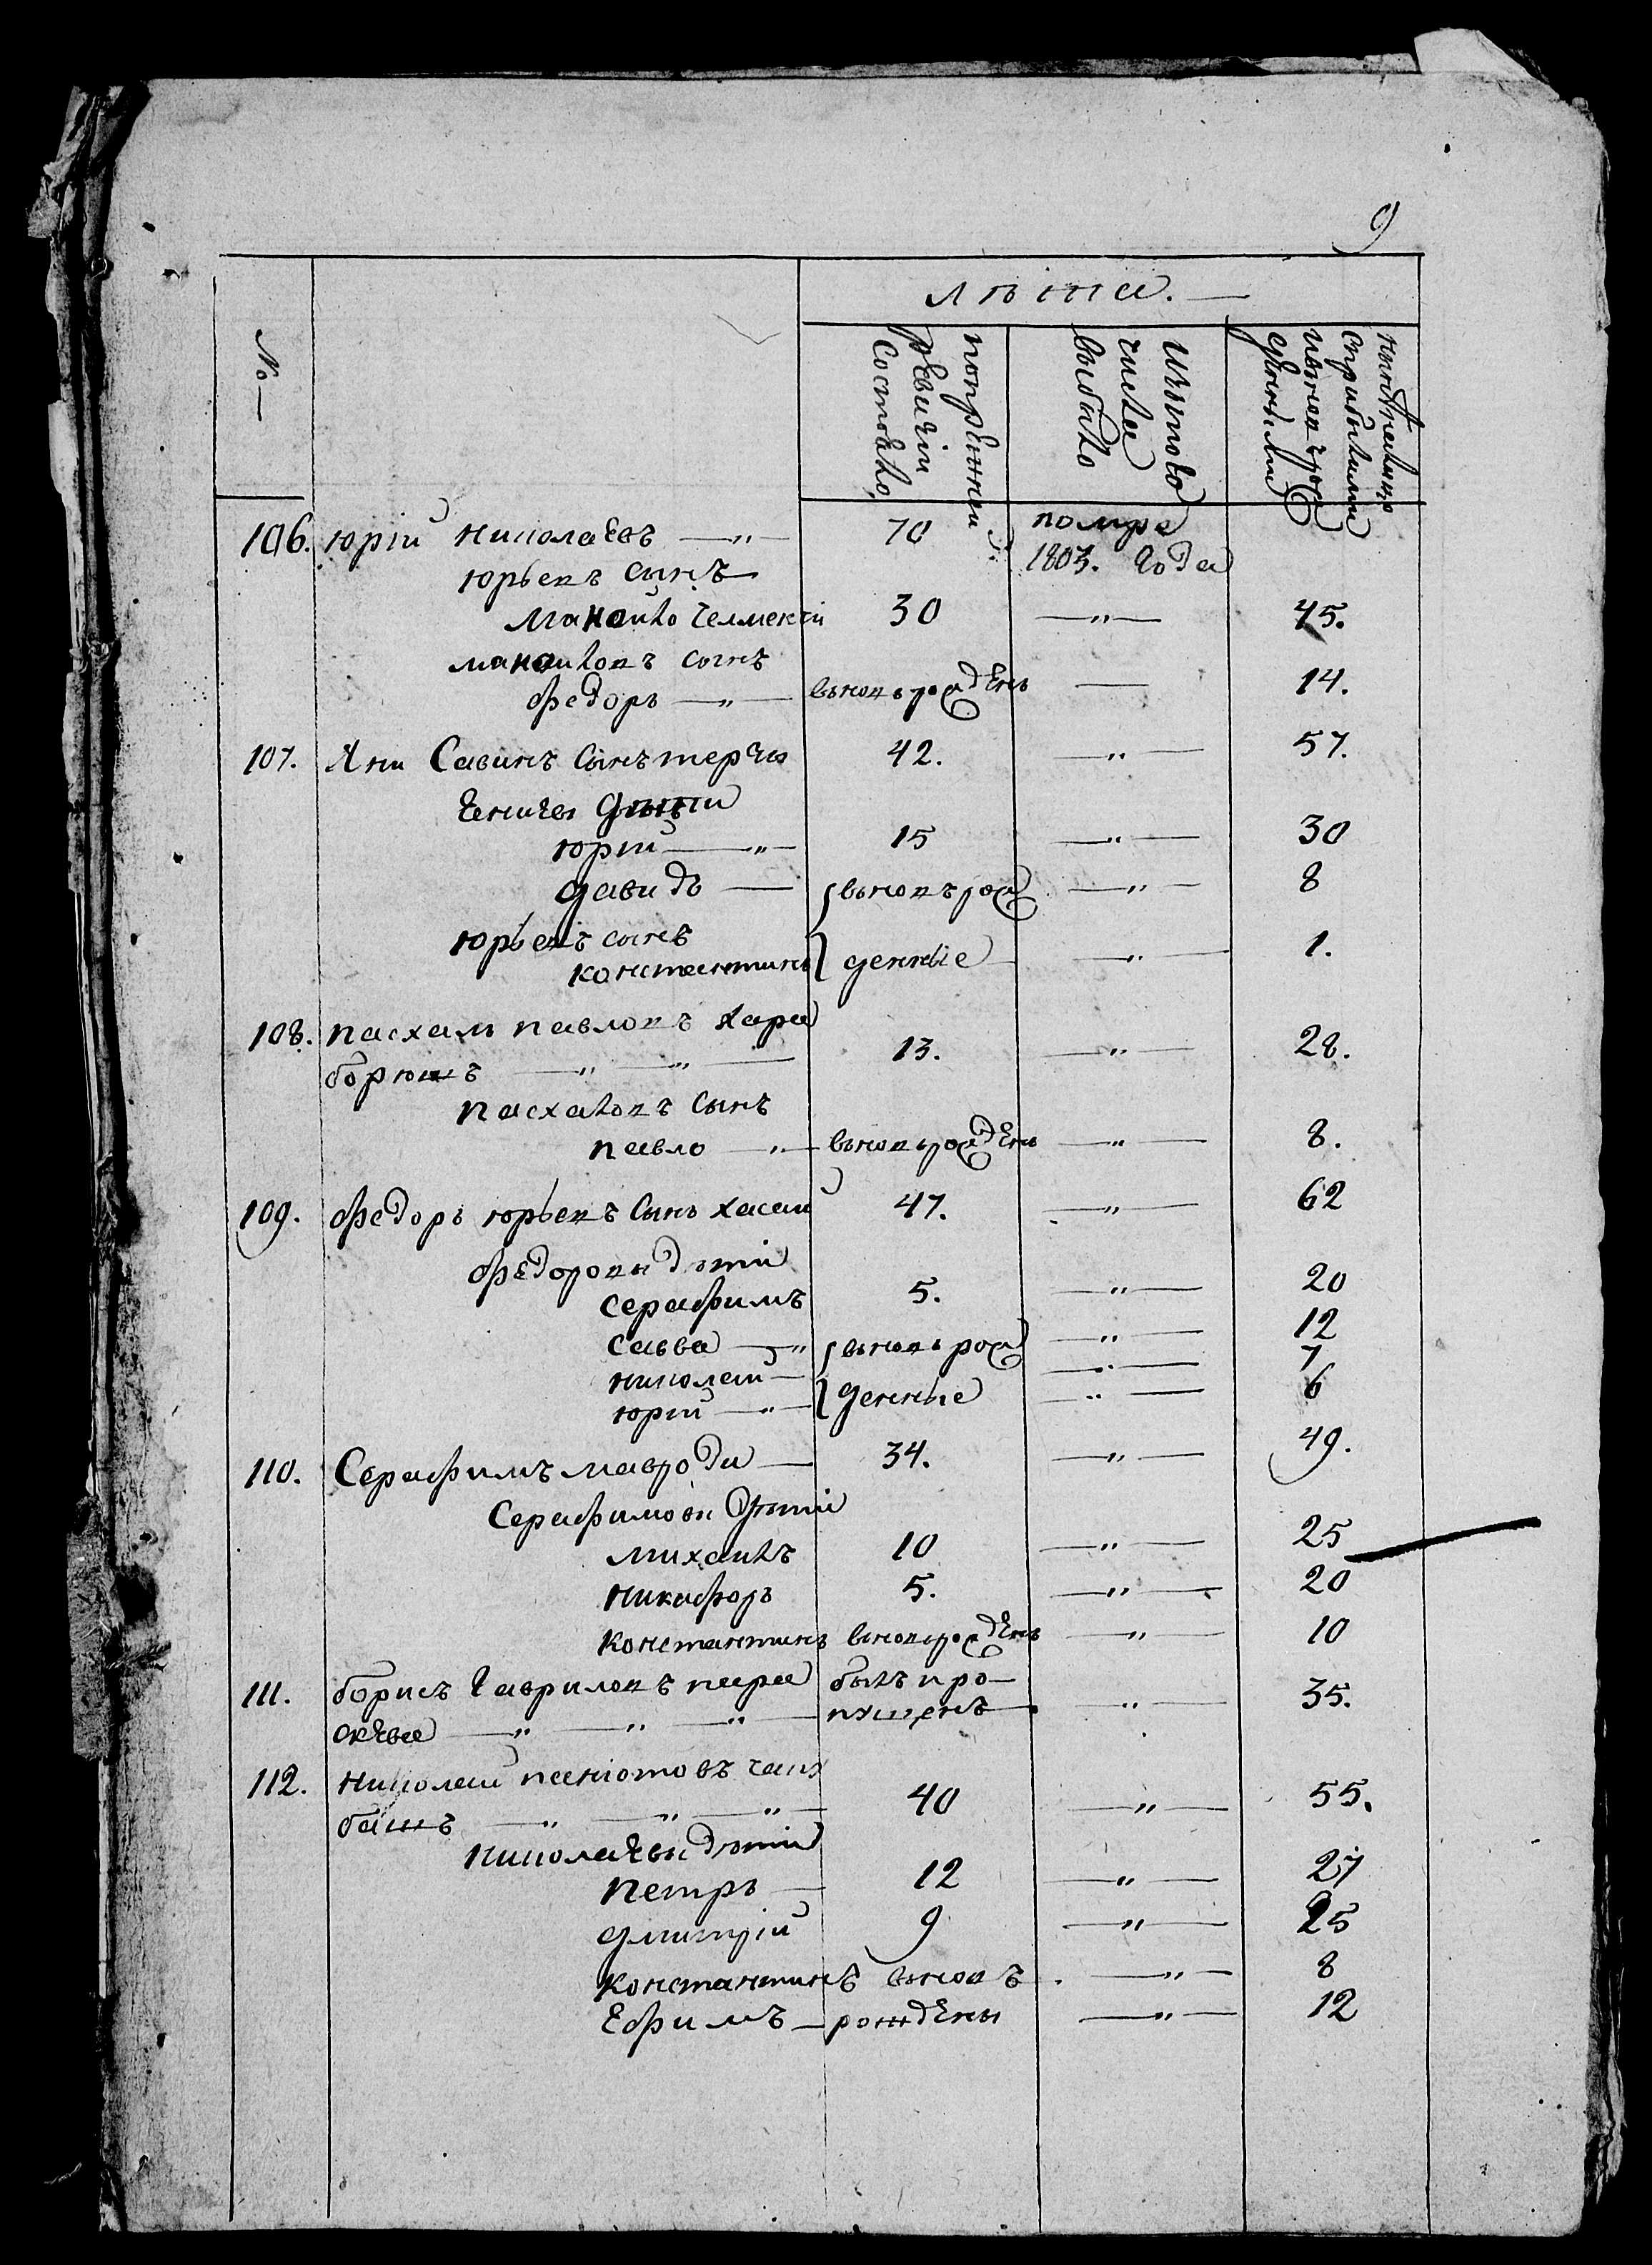 9
Лѣта.
№
попрежней
ревизіи
Состояло,
Изътого
числа
выбыло
нынѣ налицо
съприбылыми
ивновь рож
денными
106. юрій Николаевъ 70 помре
1803. года
юрьевъ сынъ
Манойло Челмекчи 30 45.
манойловъ сынъ
федоръ вьновь рожденъ 14.
107. Яни Савинъ сынъ 42. 57.
дѣти
юрій 15 30
давидъ вьновь рож 8
юрьевъ сынъ
константинъ денные 1.
108. пасхали павловъ Хара 13. 28.
пасхаловъ сынъ
павло вьновь рожденъ 8.
109. федоръ юрьевъ сынъ Хасай 47. 62
федоровы дѣти
серафимъ 5. 20
савва вьновь рож 12
николай 7
юрій денные 6
110. Серафимъ мавроди 34. 49.
Серафимовы дѣти
михаилъ 10 25
никифоръ 5. 20
константинъ вьновь рожденъ 10
111. борисъ гавриловъ пара былъ про
скева пущенъ 35.
112. николай паніотовъ
башъ 40 55.
николаевы дѣти
петръ 12 27
дмитрій 9 25
константинъ вьновь 8
Ефимъ рождены 12